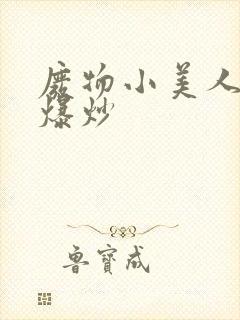 废物小美人
爆炒
鲁寶成